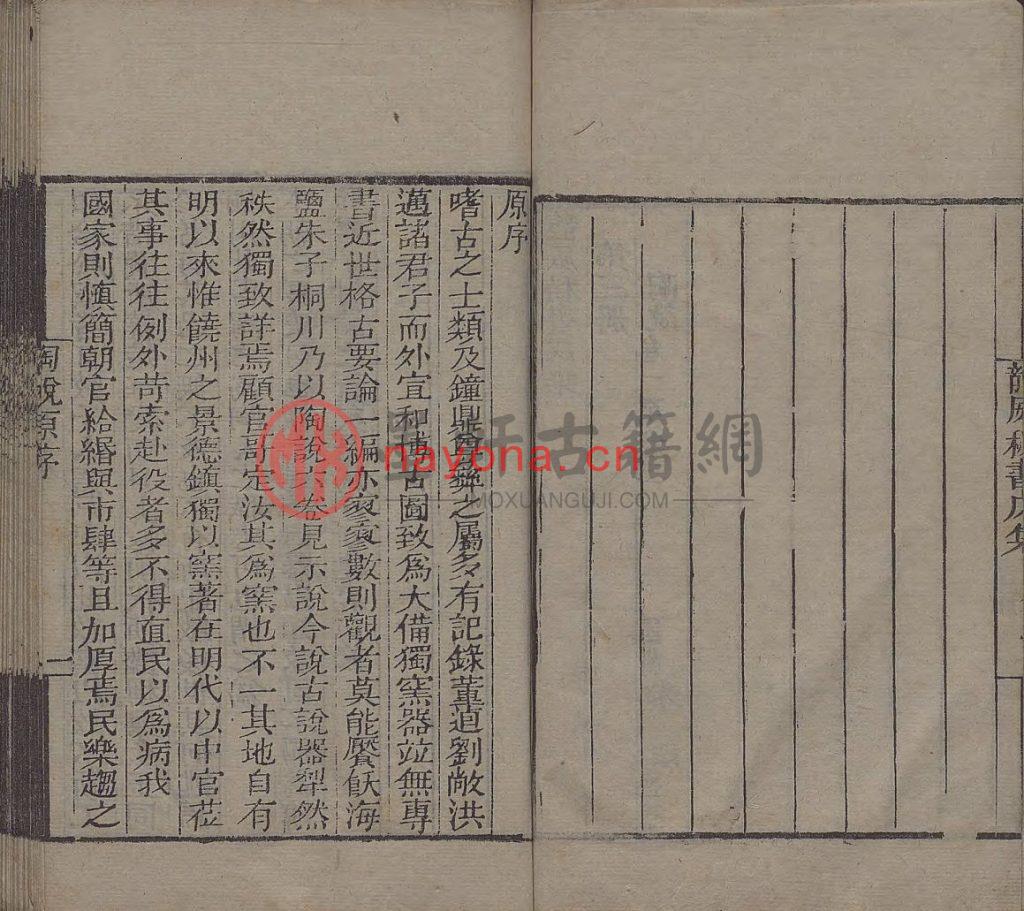 龍威秘書戊集
原序
嗜古之士類及鐘鼎尊彝之屬多有記錄董逌劉敞洪
邁諸君子而外宣和博古圖致爲大備獨窯器竝無專
書近世格古要論一編亦寥寥數則觀者莫能饜飫海
鹽朱子桐川乃以陶說六卷見示說今說古說器犁然
秩然獨致詳焉顧官哥定汝其爲窯也不一其地自有
明以來惟饒州之景德鎮獨以窯著在明代以中官蒞
其事往往例外苛索赴役者多不得直民以爲病我
國家則愼簡朝官給緡與市肆等且加厚焉民樂趨之
陶說原序
一
墨軒古籍網
nayona.cn
MOXUANGUJI.COM